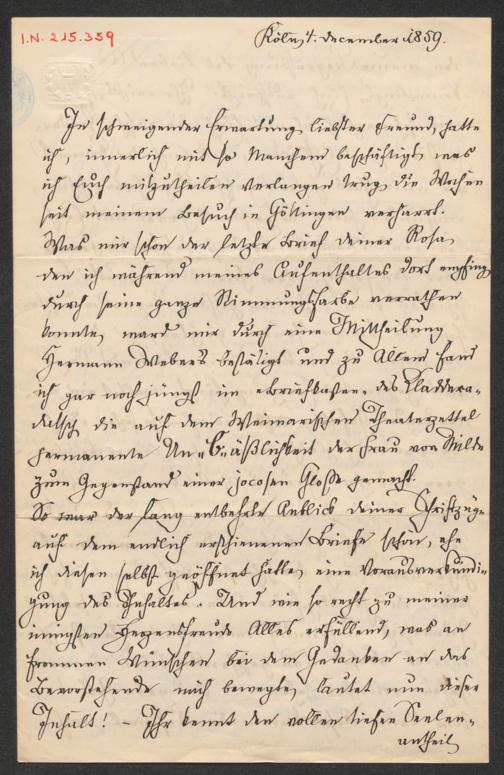 I.N. 215.359
Köln, 4. December 1859.
In schweigender Erwartung, liebster Freund, hatte
ich, innerlich mit so Manchem beschäftigt, was
ich Euch mitzutheilen Verlangen trug, die Wochen
seit meinem Besuch in Göttingen verharrt.
Was mir schon der letzte Brief deiner Rosa,
den ich während meines Aufenthaltes dort empfing,
durch seine ganze Stimmungsfarbe verrathen
konnte, ward mir durch eine Mittheilung
Hermann Weber's bestätigt und zu Allem fand
ich gar noch jüngst im Briefkasten des Kladdera-
datsch die auf dem Weimarischen Theaterzettel
permanente Un-Päßlichkeit der Frau von Milde
zum Gegenstand einer jocosen Glosse gemacht.
So war der lang entbehrte Anblick deiner Schriftzüge
auf dem endlich erschienenen Briefe schon, ehe
ich diesen selbst geöffnet hatte, eine Vorausverkündi-
gung des Inhaltes. Und wie so recht zu meiner
innigsten Herzensfreude Alles erfüllend, was an
frommen Wünschen bei dem Gedanken an das
Bevorstehende mich bewegte, lautet nun dieser
Inhalt! – Ihr kennt den vollen tiefen Seelen-
antheil,